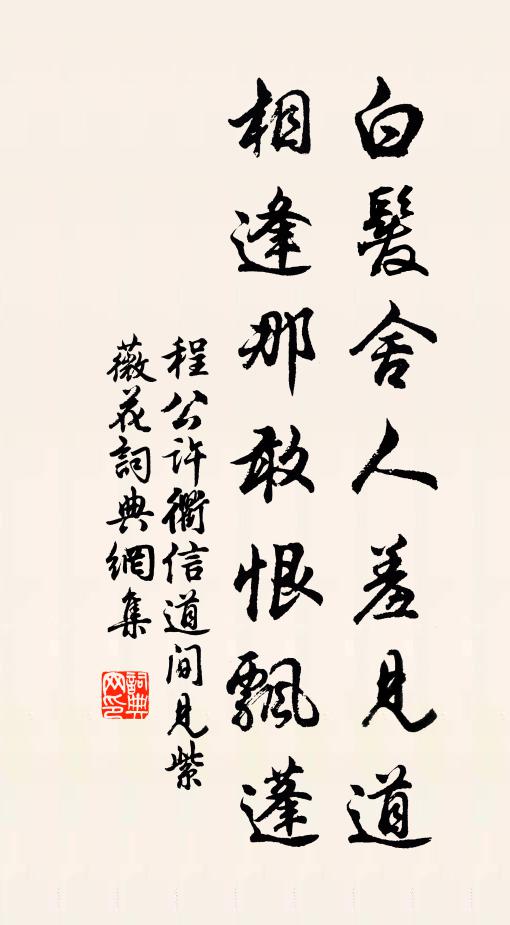 白髮舍人羞見道
相逢那敢恨飄蓬
程公許衢信道間見紫
薇花詞典網集
詞典网印